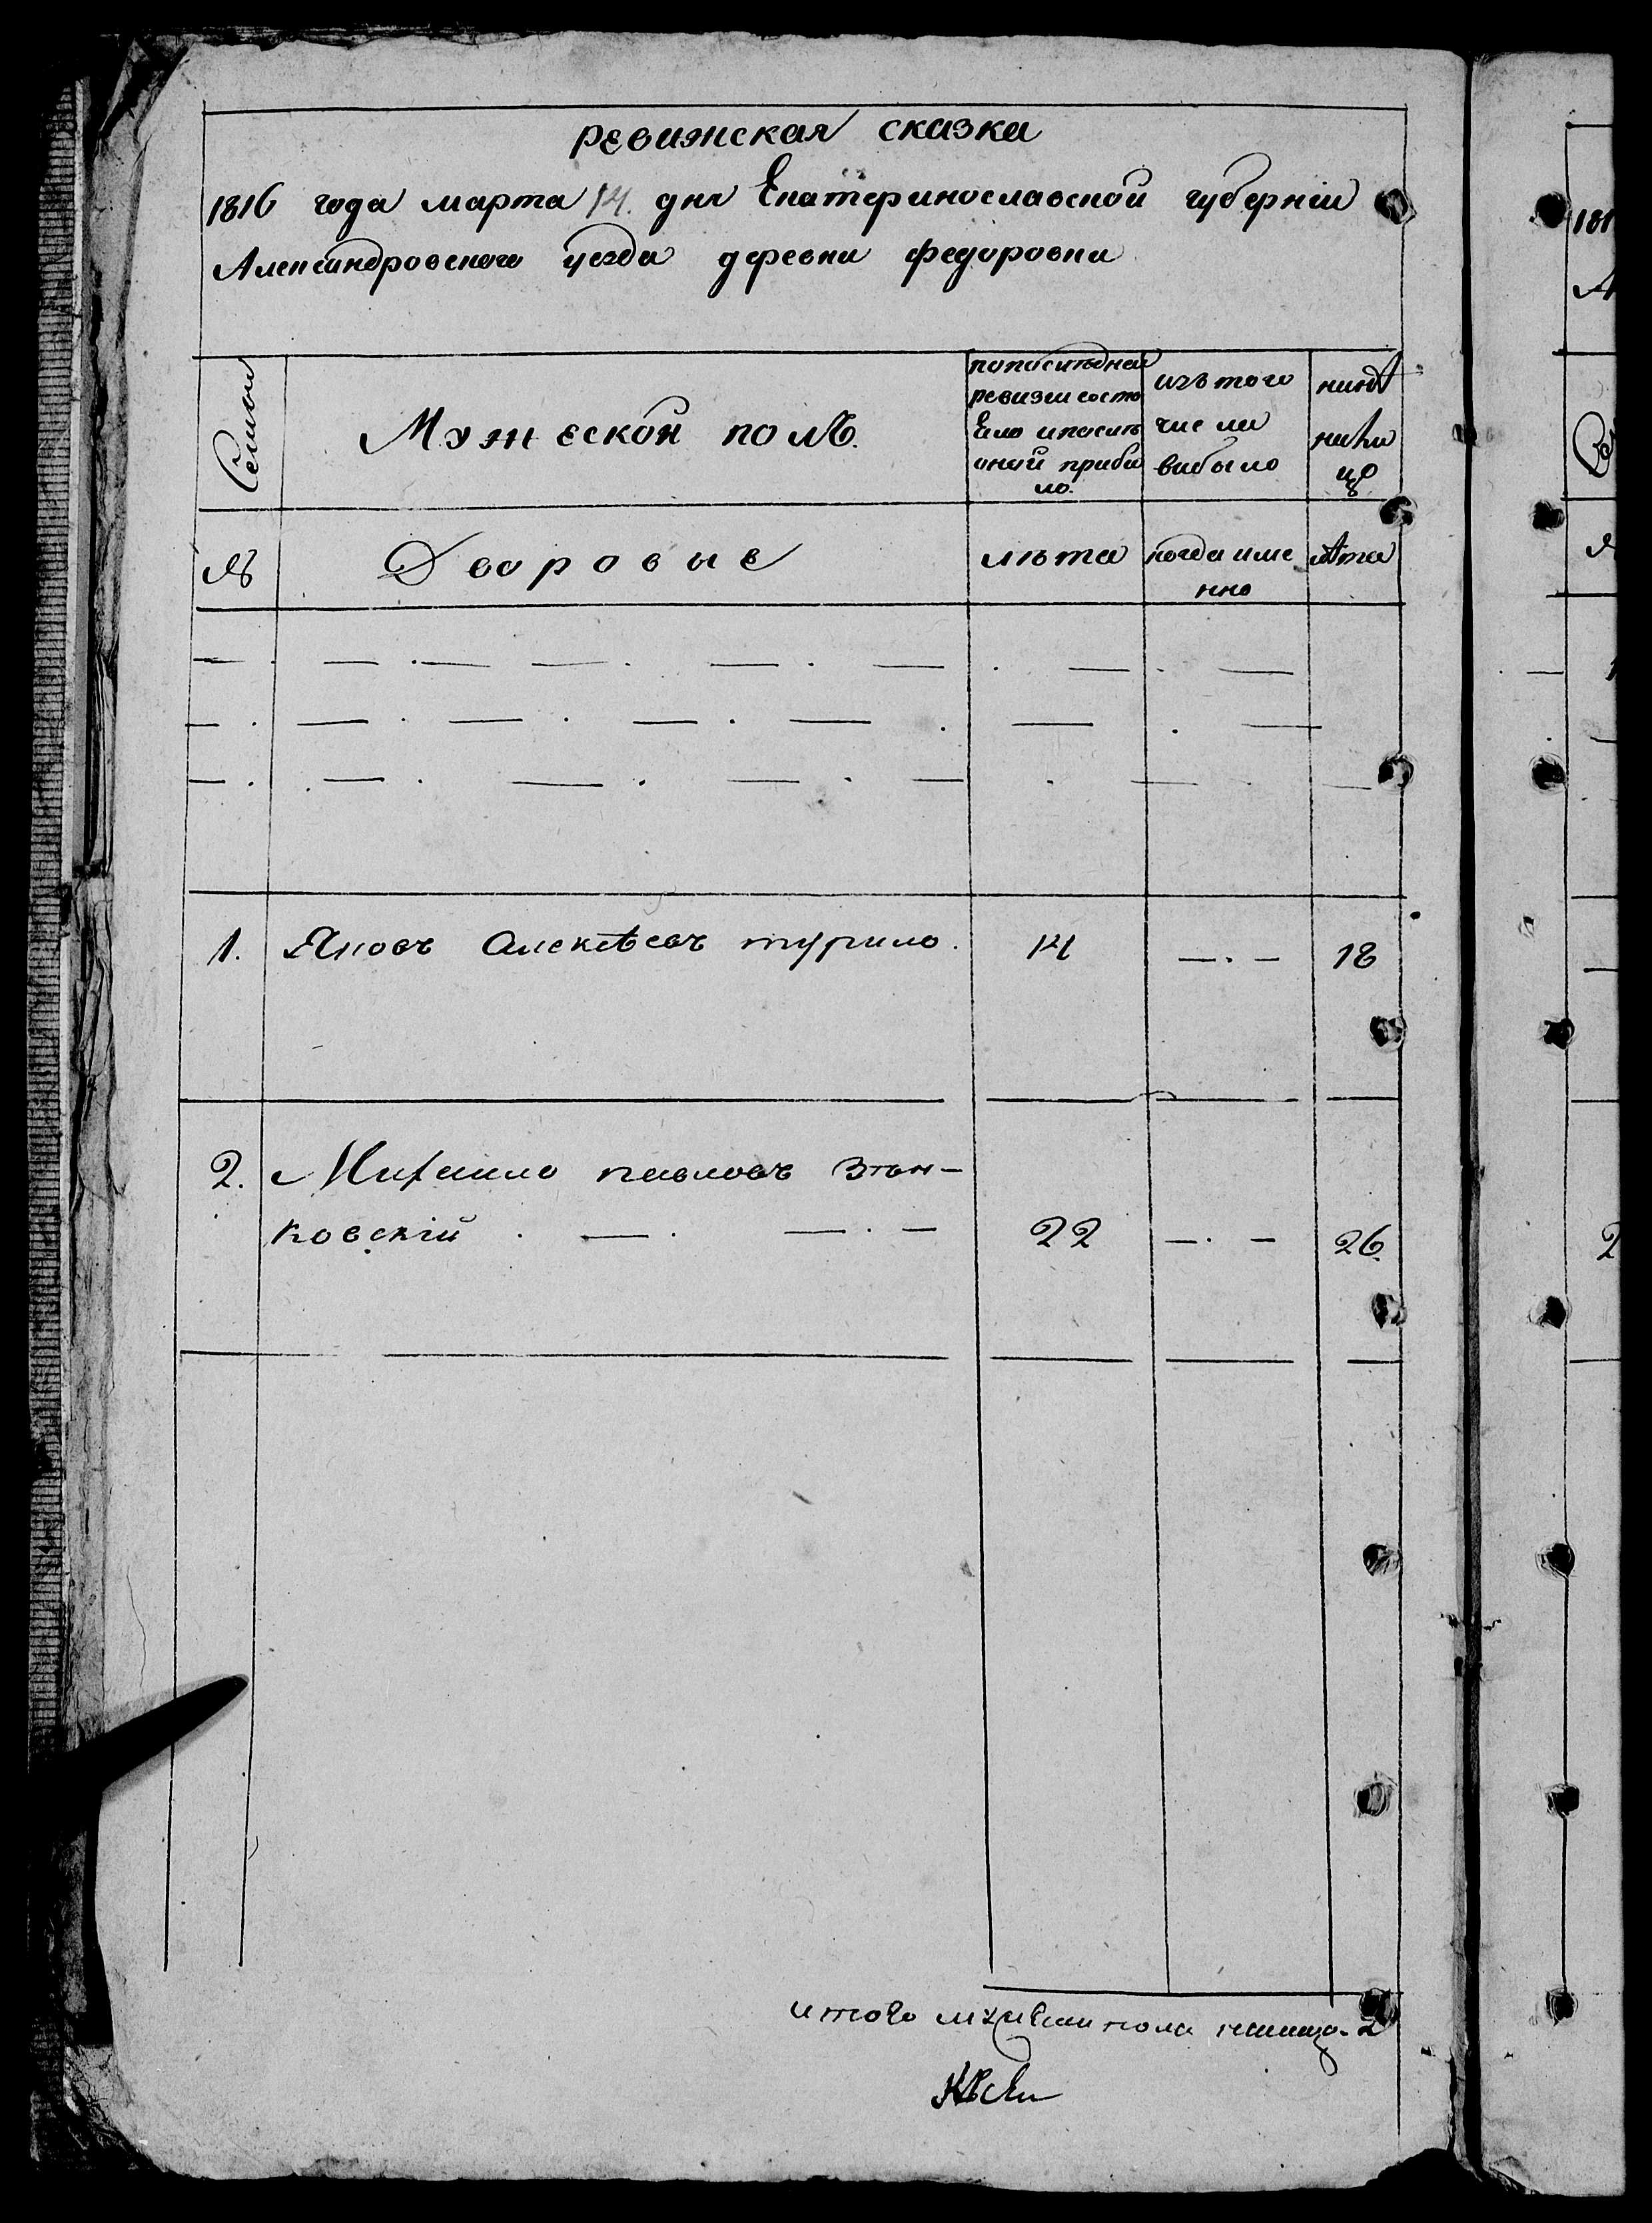 ревижская сказка
1816 года марта 14. дня Екатеринославской губернiи
Александровского уезда деревни федоровки
Семьи
Мужеской полъ.
попоследней ревизiи состо Яло и после оной прибы ло.
изъ того числа выбыло
ныне на лицо
№
Дворовые
лѣта
когда име нно
лѣта
1. Яковъ Алексѣевъ турило. 14 —.— 18
2. Михаило павловъ Зѣн-
ковскiй . —. —.— 22 —.— 26.
итого пола налицо - 2
181
А
2